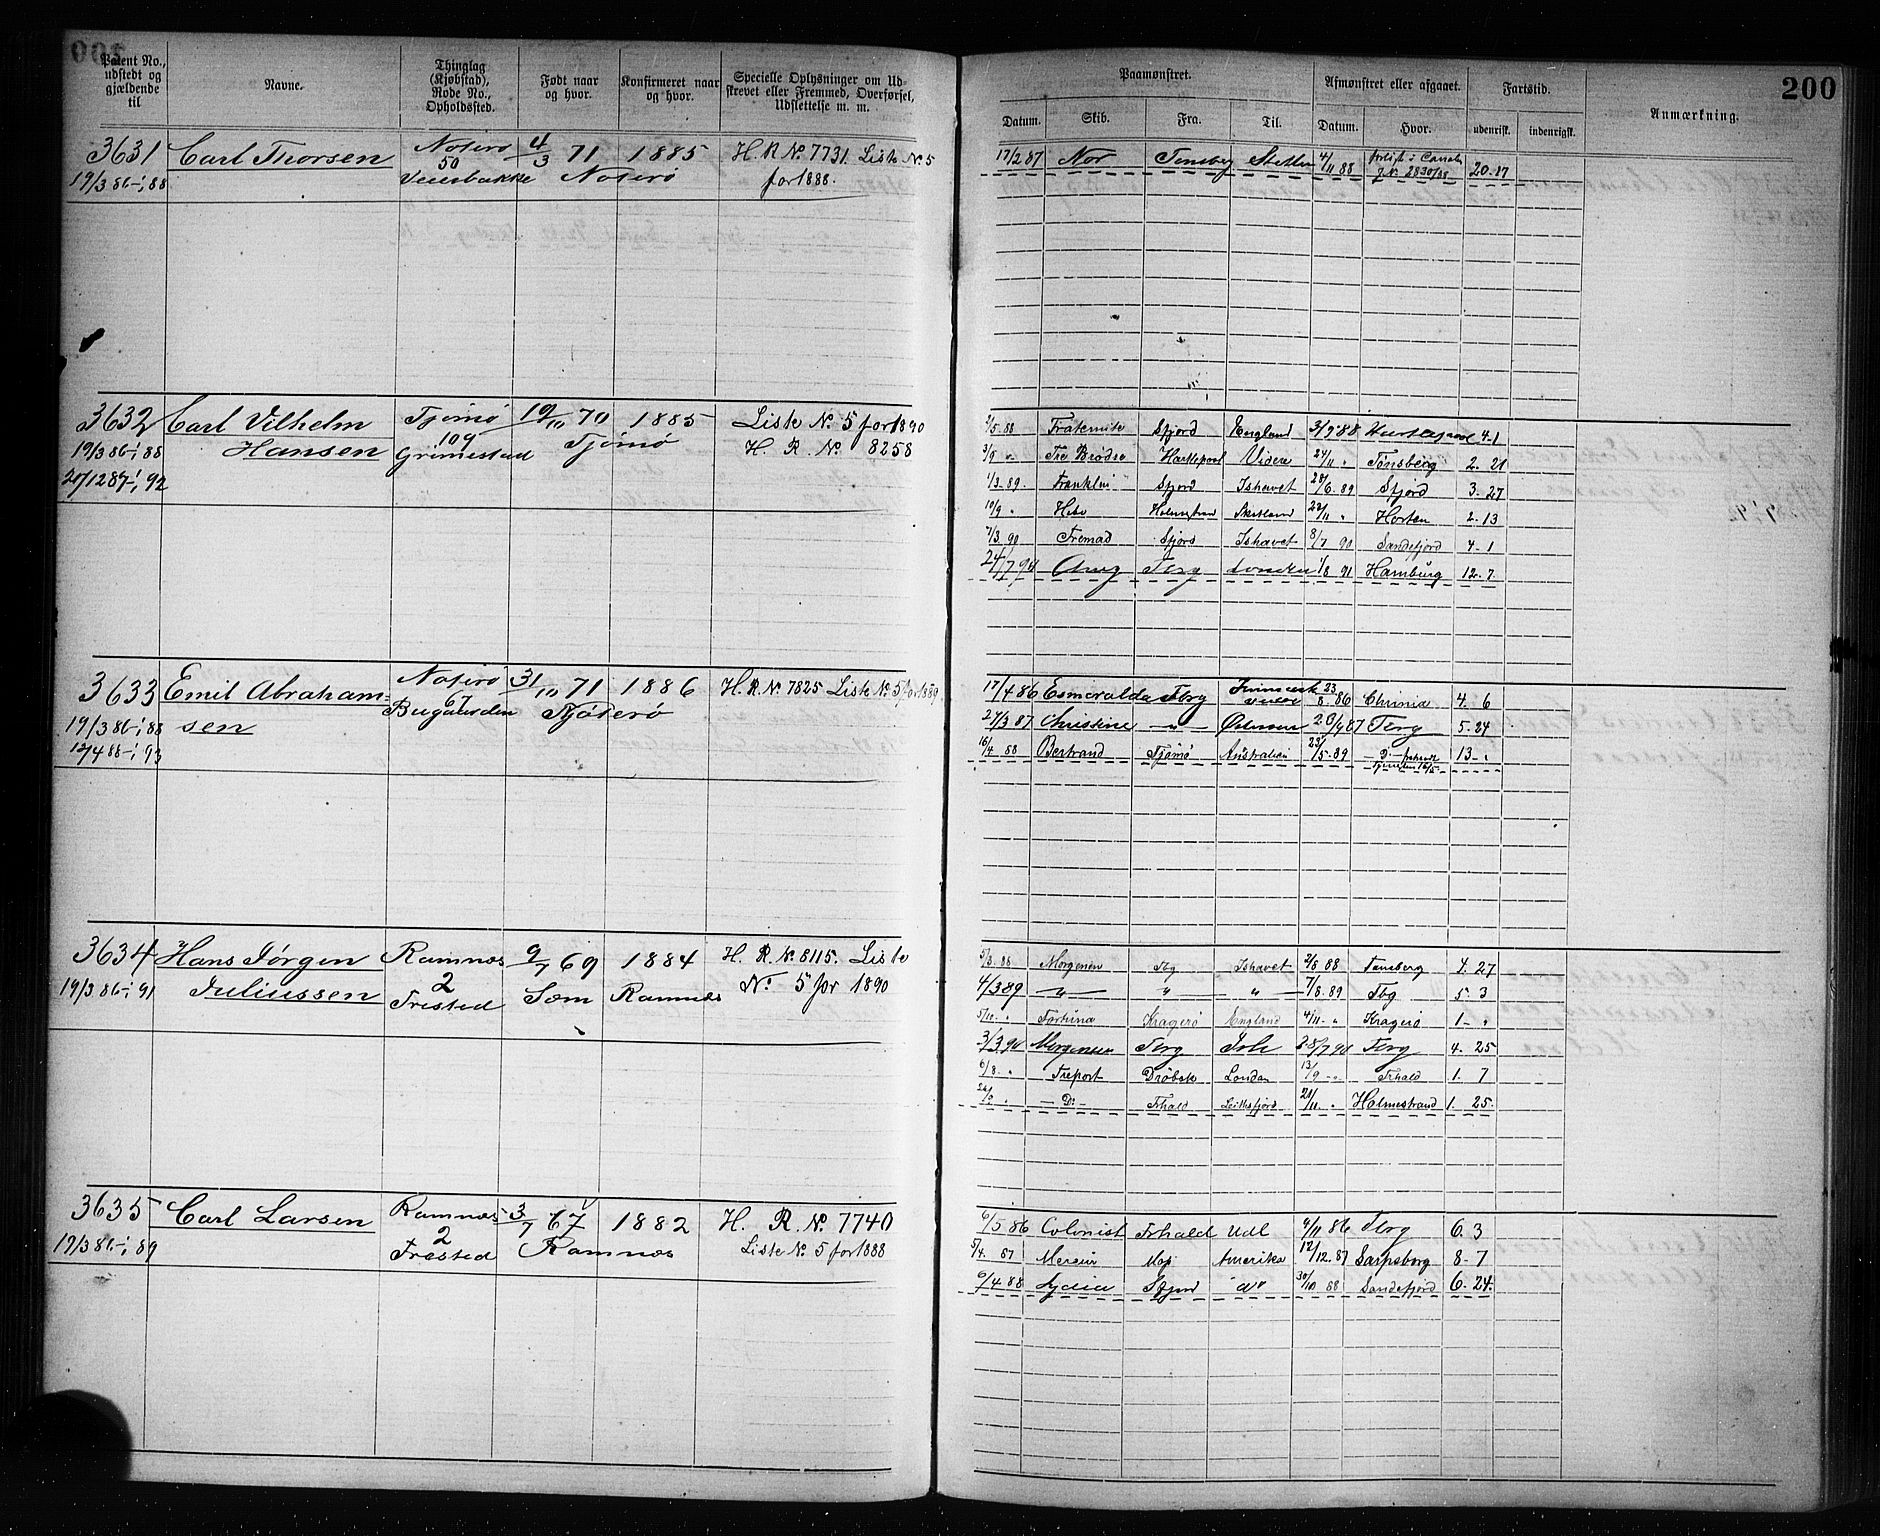 200
Patent No., udstedt og gjældende til
Navne.
Thinglag (Kjøbstad), Rode No., Opholdssted.
Født naar og hvor.
Konfirmeret naar og hvor.
Specielle Oplysninger om Udskrevet eller Fremmed, Overførsel, Udslettelse m. m.
Paamønstret.
Afmønstret eller afgaaet.
Fartstid.
Anmærkning.
Datum. Skib. Fra. Til. Datum. Hvor. udenrisk. indenrigsk.
3631 Carl Thorsen Noterø 4/3 71 1885 H. R No. 7731. Liste No. 5
19/3 86 - 1/1 88 50 Noterø for 1888.
17/2 87 Nor Tønsberg 4/11 88 20. 17
3632 Carl Vilhelm Tjømø 19/10 70 1885 Liste No. 5 for 1890
19/3 86 - 1/1 88 Hansen 109 Grimestad Tjømø H. R. No. 8258
20/12 87 - 1/1 92
Fraternite Sfjord England 3/9 88 4. 1
3/9 " Tre Brødre Hartlepool Videre 24/11 " Tønsberg 2. 21
1/3. 89. Franklin Sfjord Ishavet 28/6. 89 Sfjord 3. 27
10/9 " Hebe 22/11 " Horten 2. 13
7/3 90 Fremad Sfjord Ishavet 8/7 90 Sandefjord 4. 1
24/7 90 Tbrg London 1/8 91 Hamburg 12. 7
3633 Emil Abraham= Noterø 31/10 71 1886 H. R. No. 7825 Liste No. 5 for 1889
19/3 86 - 1/1 88 sen 67 Bugaarden
12/4 88 - 1/1 93
17/4 86 Esmeralda Tbrg 23/8. 86 Chrinia 4. 6
27/3 87 Christine — " — 20/9 87 Tbrg 5. 24
16/4 88 Bertrand Tjømø Australien 23/5. 89 13 - "
3634 Hans Jørgen Ramnæs 9/7 69 1884 H. R. No. 8115. Liste
19/3 86 - 1/1 91 Juliussen 2 Trested Sem Ramnæs No. 5 for 1890
5/3. 88 Morgenen Tbg Ishavet 2/8 88 Tønsberg 4. 27
4/3 89 — " — " — " — 7/8. 89 Tbg 5. 3
5/10. " Fortuna Kragerø England 4/11 - " Kragerø 1 - "
3/3 90 Morgenen Tbrg 28/7 90 Tbrg 4. 25
6/8. " Treport Drøbak London 13/9 - " Frhald 1. 7
— Do — Frhald 28/11. " Holmestrand 1. 25.
3635 Carl Larsen Ramnæs 3/7 67 1882 H. R. No. 7740
19/3 86 - 1/1 89 2 Trested Ramnæs Liste No. 5 for 1888
6/5 86 Colonist Frhald Udl 9/11 86 Tbrg 6. 3
5/4. 87 Mercur Moss Amerika 12/12. 87 Sarpsborg 8. 7
6/4. 88 Lydia Sfjord do 30/10 88 Sandefjord 6. 24.